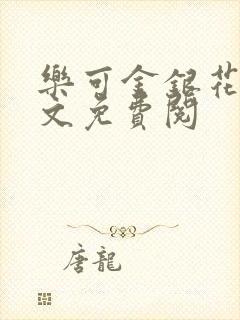 樂可金銀花
文免費閱
唐龍